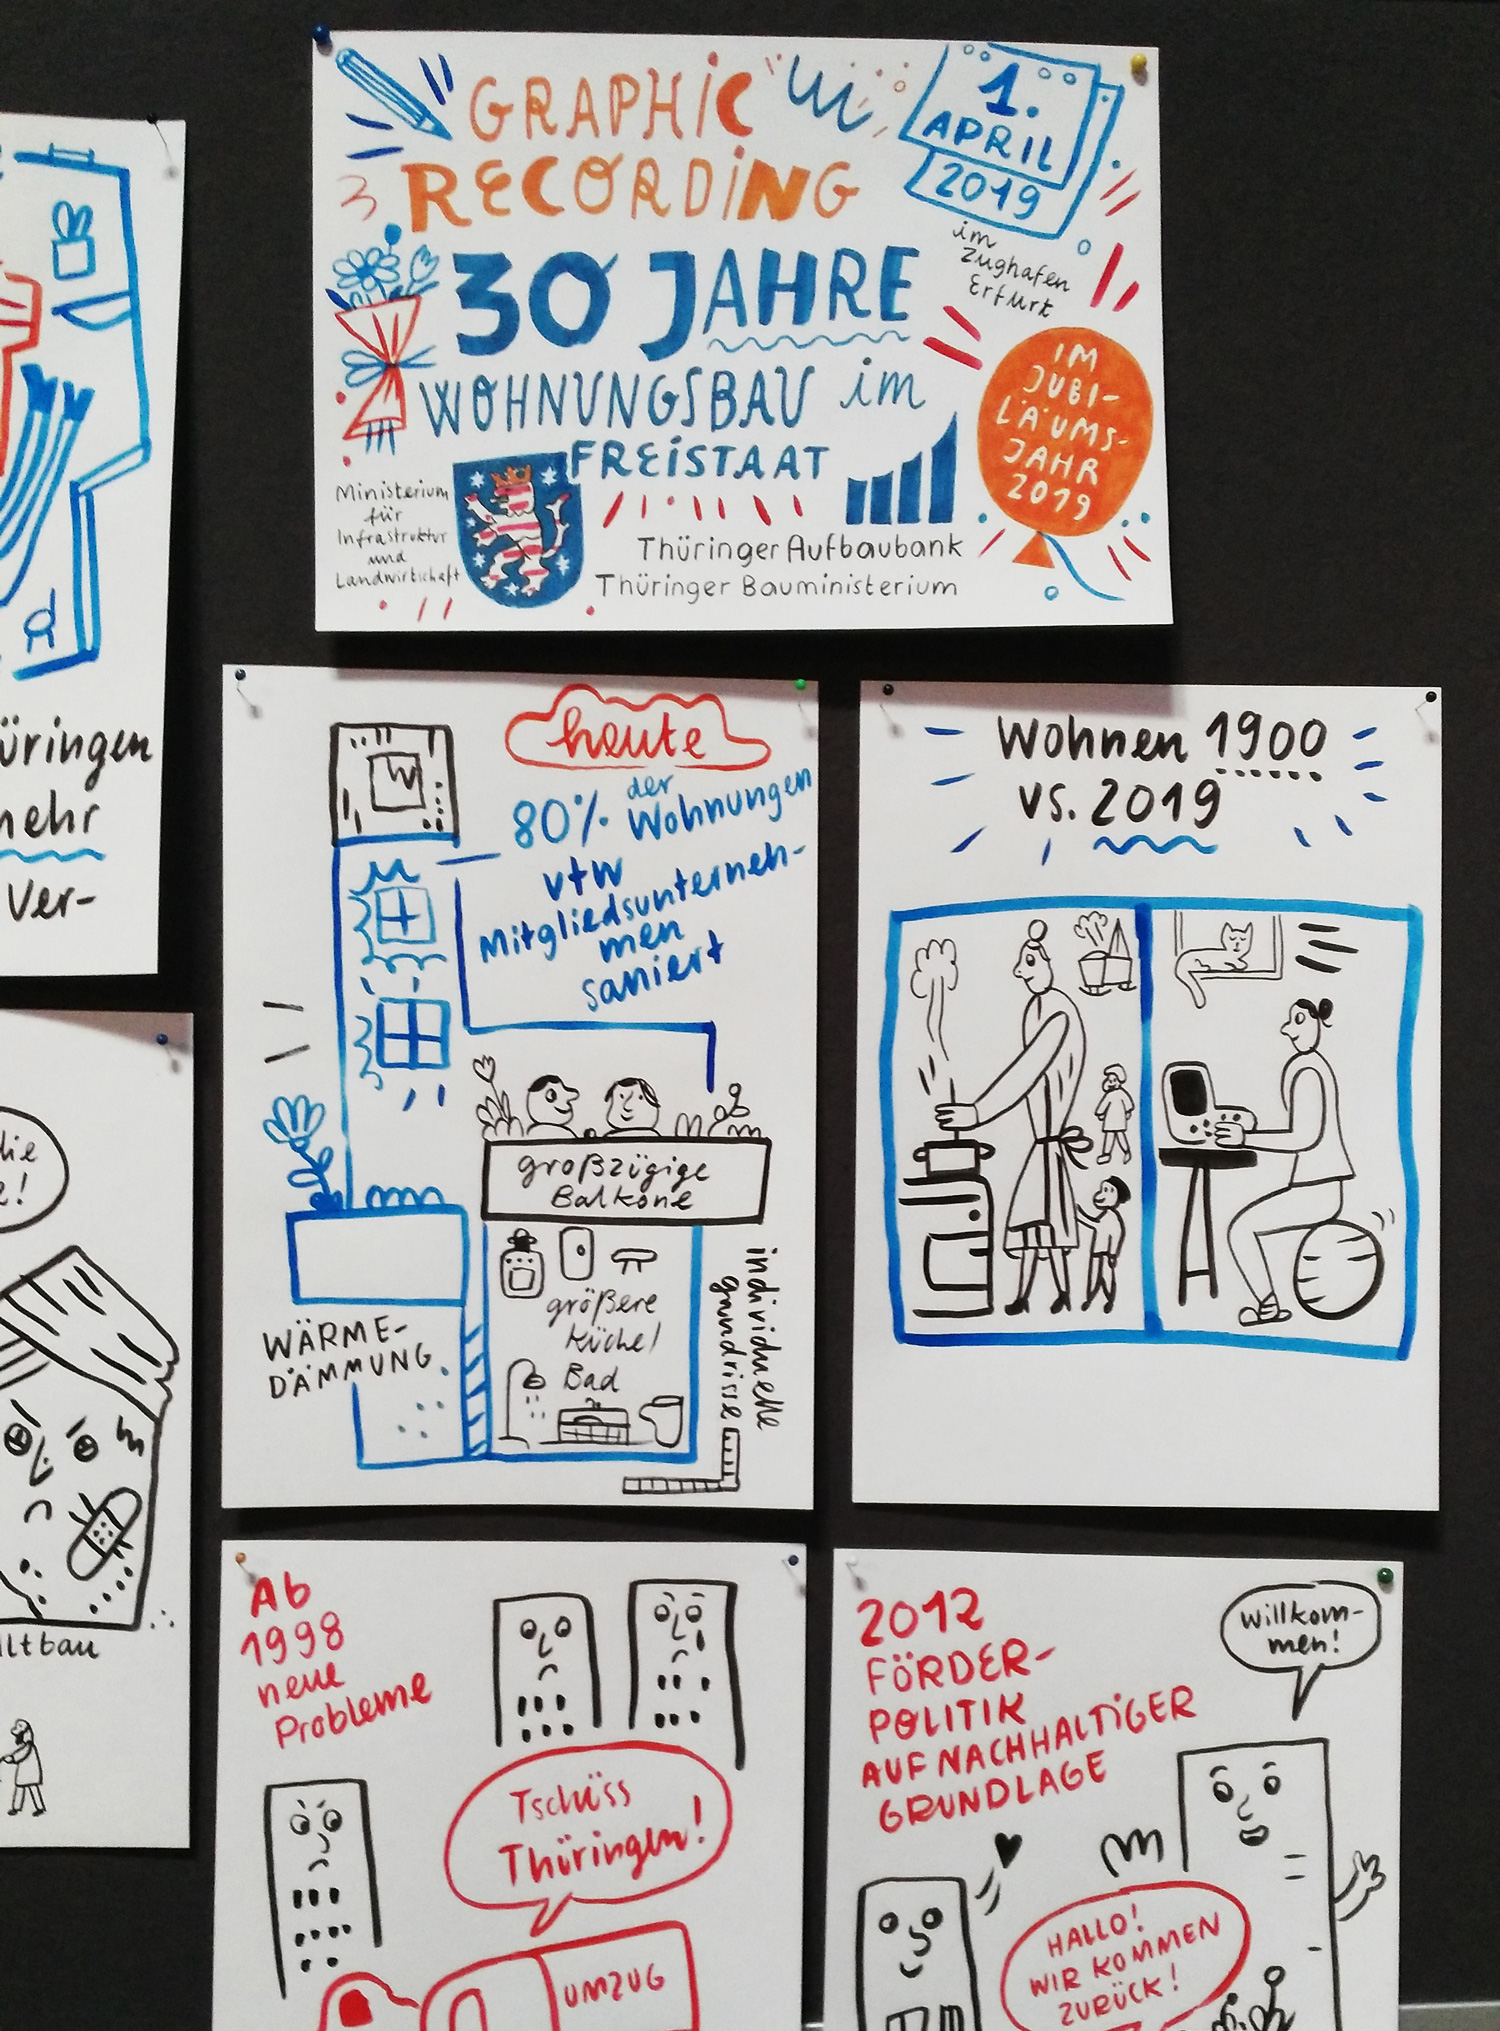 GRAPHIC
RECORDING
30 JAHRE
WOHNUNGSBAU im
FREISTAAT
1.
APRIL
2019
im
Zughafen
Erfurt
IM
JUBI-
LÄUMS-
JAHR
2019
Ministerium
für
Infrastruktur
und
Landwirtschaft
Thüringer Aufbaubank
Thüringer Bauministerium
üringen
mehr
Ver-
die
ltbau
heute
80% der Wohnungen
vtw
Mitgliedsunterneh-
men
saniert
großzügige
Balkone
größere
Küche/
Bad
individuelle
grundrisse
WÄRME-
DÄMMUNG
Wohnen 1900
vs. 2019
Ab
1998
neue
Probleme
Tschüss
Thüringen!
UMZUG
2012
FÖRDER-
POLITIK
AUF NACHHALTIGER
GRUNDLAGE
Willkom-
men!
HALLO!
WIR KOMMEN
ZURÜCK!